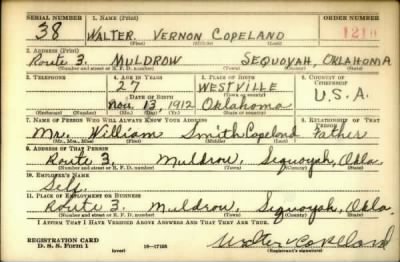 SERIAL NUMBER 1. NAME (Print) ORDER NUMBER
38 WALTER. VERNON COPELAND 1210
(First) (Middle) (Last)
2. ADDRESS (Print)
Route 3. MULDROW SEQUOYAH, OKLAHOMA
(Number and street or R. F. D. number) (Town) (County) (State)
3. TELEPHONE 4. AGE IN YEARS 5. PLACE OF BIRTH 6. COUNTRY OF CITIZENSHIP
27 WESTVILLE
DATE OF BIRTH (Town or county)
Nov. 13, 1912 Oklahoma U.S.A.
(Mo.) (Day) (Yr.) (State or country)
7. NAME OF PERSON WHO WILL ALWAYS KNOW YOUR ADDRESS 8. RELATIONSHIP OF THAT PERSON
Mr. William Smith Copeland Father
(Mr., Mrs., Miss) (First) (Middle) (Last)
9. ADDRESS OF THAT PERSON
Route 3. Muldrow, Sequoyah, Okla.
(Number and street or R. F. D. number) (Town) (County) (State)
10. EMPLOYER'S NAME
Self.
11. PLACE OF EMPLOYMENT OR BUSINESS
Route 3. Muldrow, Sequoyah, Okla.
(Number and street or R. F. D. number) (Town) (County) (State)
I AFFIRM THAT I HAVE VERIFIED ABOVE ANSWERS AND THAT THEY ARE TRUE.
REGISTRATION CARD
D. S. S. Form 1 (over) 16—17105 Walter V Copeland
(Registrant's signature)